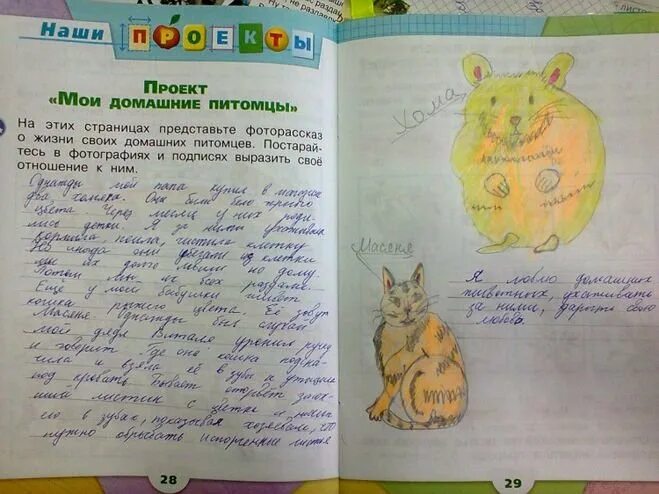 Наши ПРОЕКТЫ
Проект
«Мои домашние питомцы»
На этих страницах представьте фоторассказ
о жизни своих домашних питомцев. Постарай-
тесь в фотографиях и подписях выразить своё
отношение к ним.
Однажды мой папа купил в магазине
два хомяка. Они были бело-
цвета. Через месяц у них роди-
лись детки. Я за ними ухаживала
кормила, поила, чистила клетку
Но иногда они убегали из клетки
мы их долго ловили по дому.
Потом мы их всех раздали.
Ещё у моей бабушки живёт
кошка рыжего цвета. Её зовут
Масеня. Однажды был случай
мой дядя Виталя уронил ручку
и говорит где она кошка подска-
чила и взяла её в зубы и утащила
под кровать. Бывает оторвёт засох-
ший листик с цветка и
его в зубах, показывая хозяевам, что
нужно обрывать испорченные листья
28
Хома
Масеня
Я люблю домашних
животных, ухаживать
за ними, дарить свою
любовь.
29